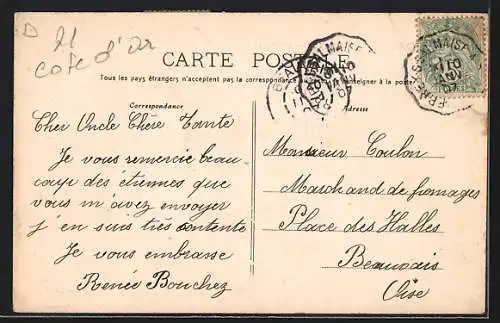 21
Cote d'Or
CARTE POSTALE
Tous les pays étrangers n'acceptent pas la correspondance au recto. Se renseigner à la poste
Correspondance
Adresse
Cher Oncle Chère Tante
Je vous remercie beau-
coup des étiennes que
vous m'avez envoyer
j'en suis très contente
Je vous embrasse
Renée Bouchez
Monsieur Coulon
Marchand de fromages
Place des Halles
Beauvais
Oise